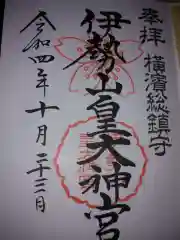 奉拝 横濱総鎮守
伊勢山皇大神宮
令和四年十月二十二日